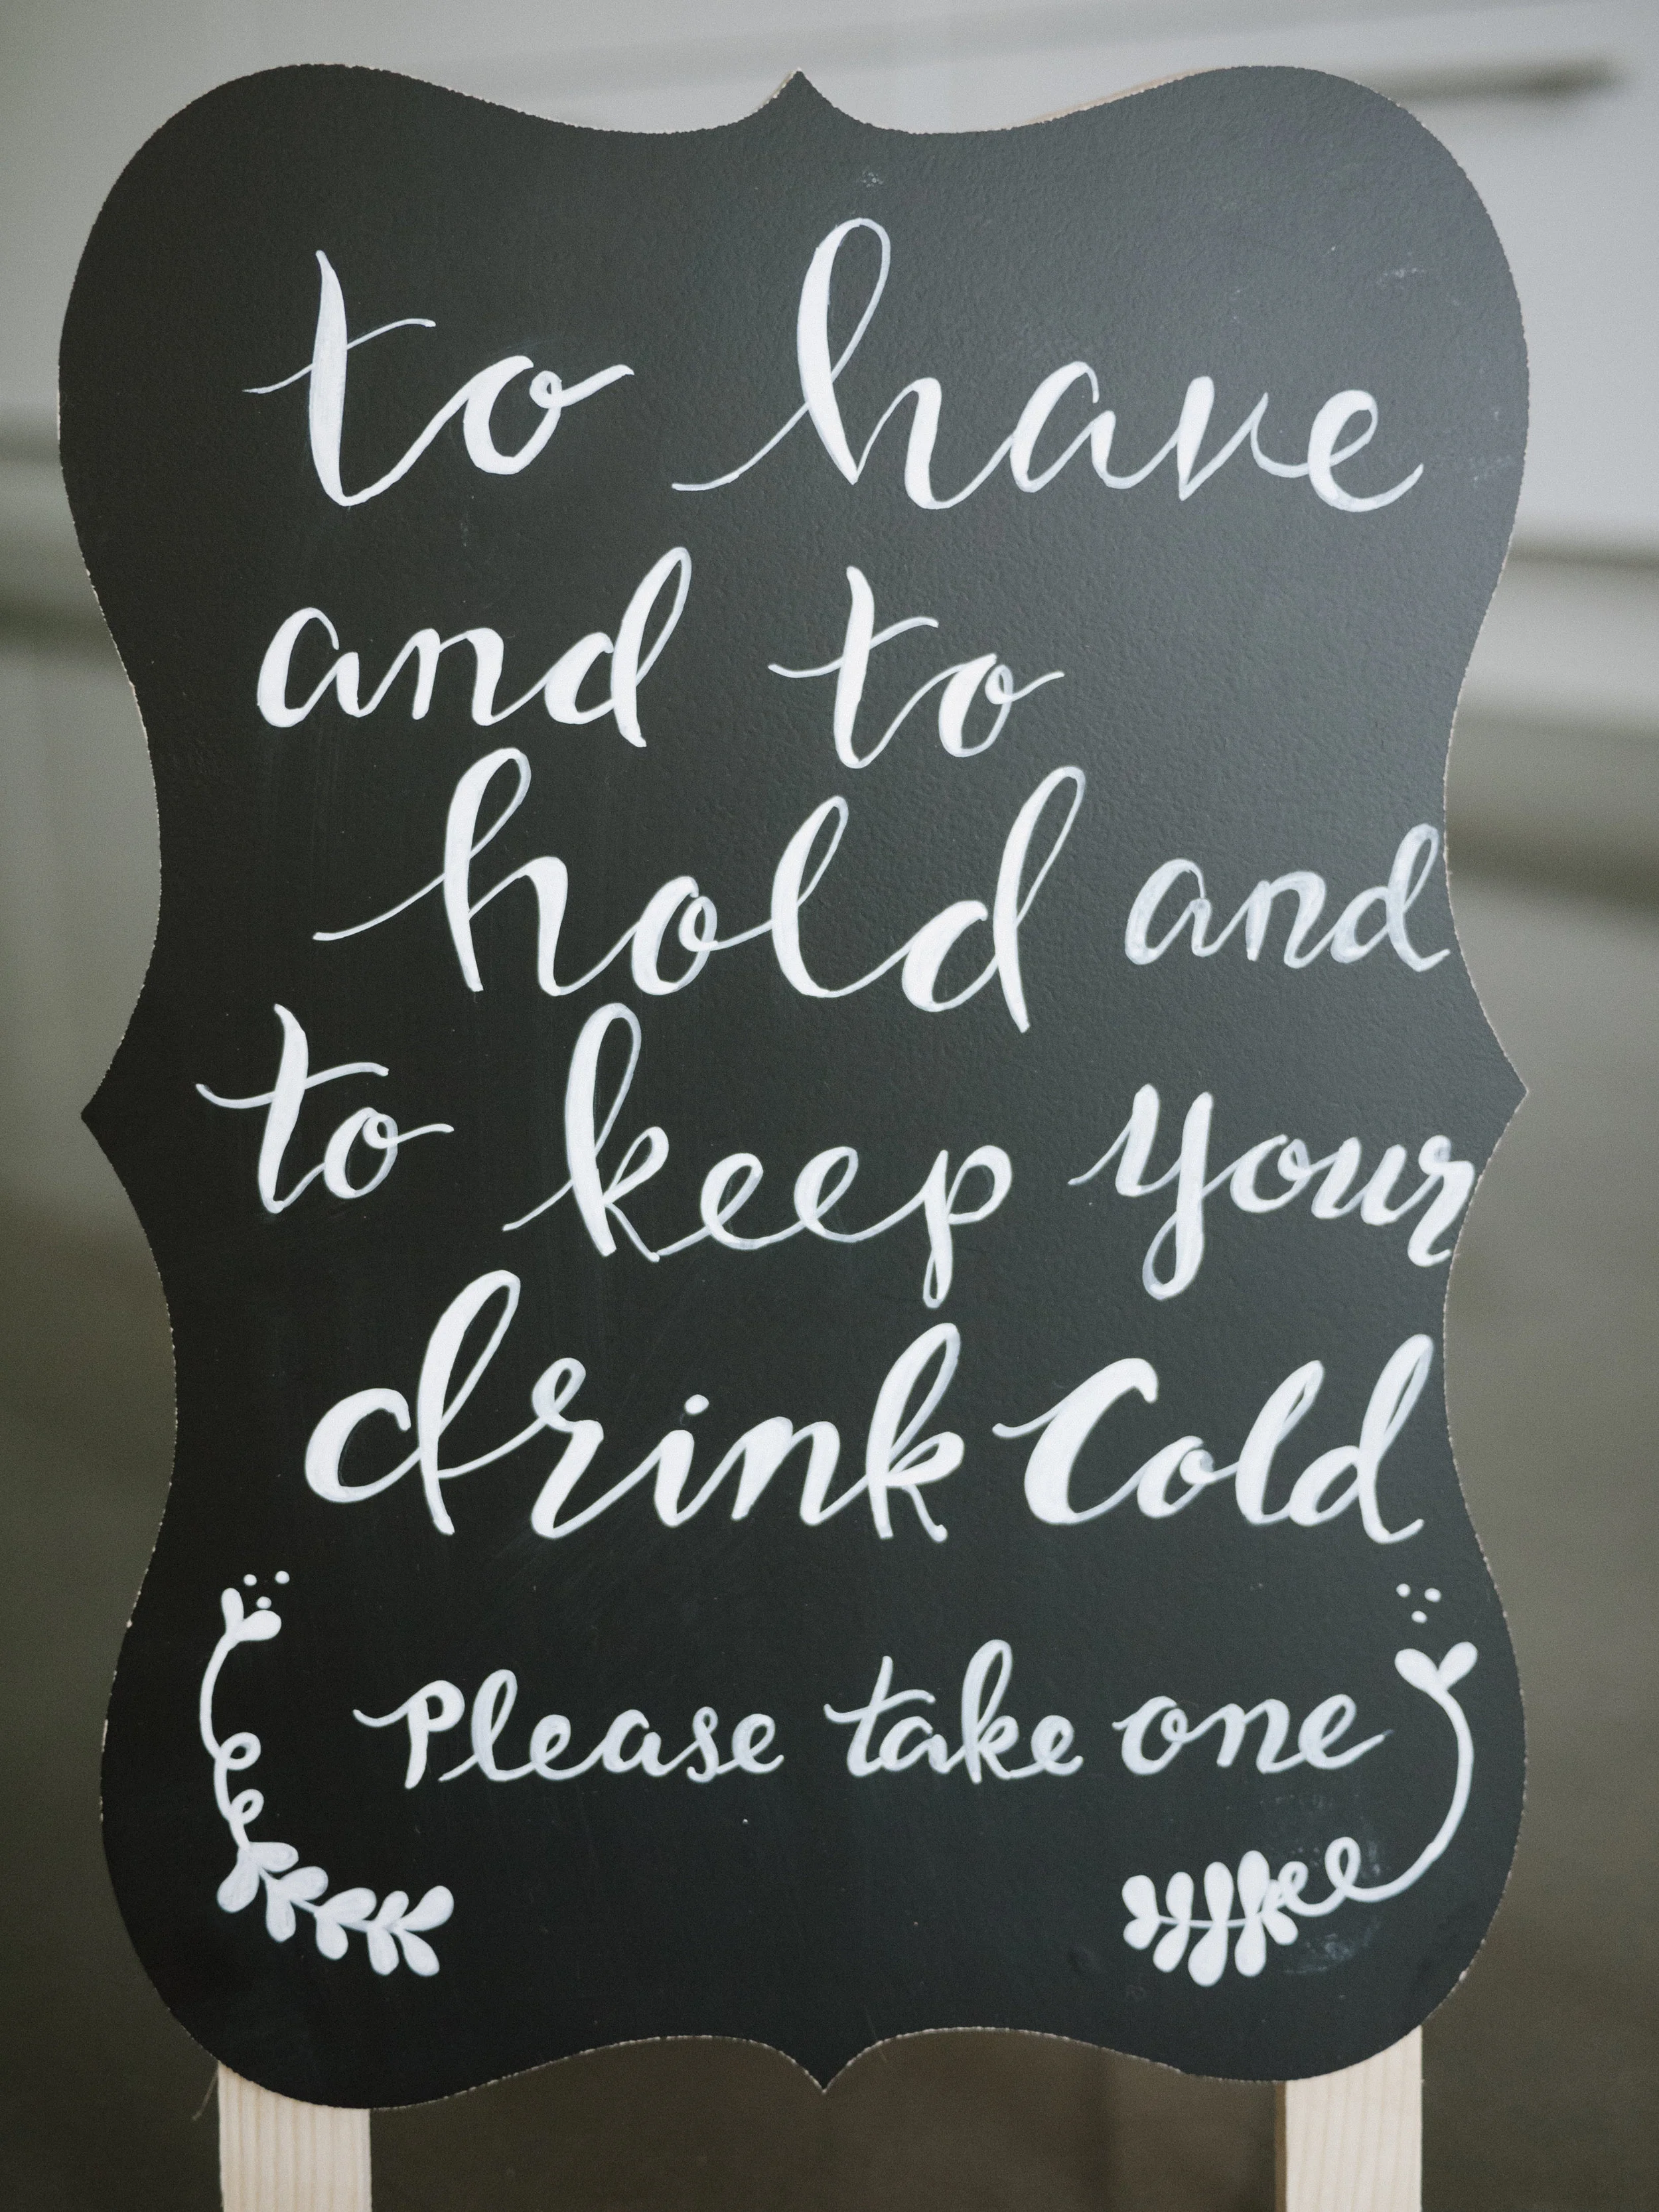 to have
and to
hold and
to keep your
drink Cold
Please take one